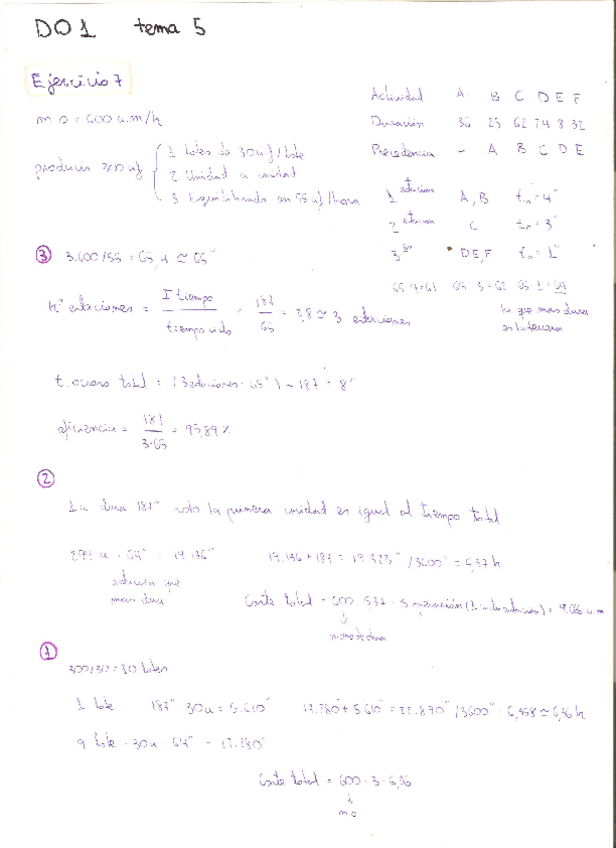 DO1 tema 5
Ejercicio 7
m o = 600 u.m/h
producir 300 uf
1 lotes de 30 uf/lote
2 Unidad a unidad
3 Equilibrando en 55 uf/hora
Actividad A B C D E F
Duración 36 25 62 24 8 32
Precedencia - A B C D E
1 estacion A, B to = 4"
2 estacion C to = 3"
3 DE,F to = 1"
65-4=61 65-3=62 65-1=64
la que mas dura es la tercera
3 3.600/55 = 65,4 ≃ 65"
nº estaciones = Σ tiempo / tiempo ciclo = 187 / 65 = 2,8 ≃ 3 estaciones
t. ocioso total = (3 estaciones · 65") - 187 = 8"
eficiencia = 187 / 3·65 = 95,89%
2
1u dura 187" solo la primera unidad es igual al tiempo total
299 u · 64" = 19.136" 19.136 + 187 = 19.323" /3600" = 5,37 h
estacion que mas dura
Coste total = 600 · 5,37 · 3 = 9.666 u.m
mano de obra
1
300/30 = 10 lotes
1 lote · 187" · 30u = 5.610" 17.280" + 5.610" = 22.890" /3600" = 6,358 ≃ 6,36 h
9 lote · 30u · 64" = 17.280"
Coste total = 600 · 3 · 6,36
m o